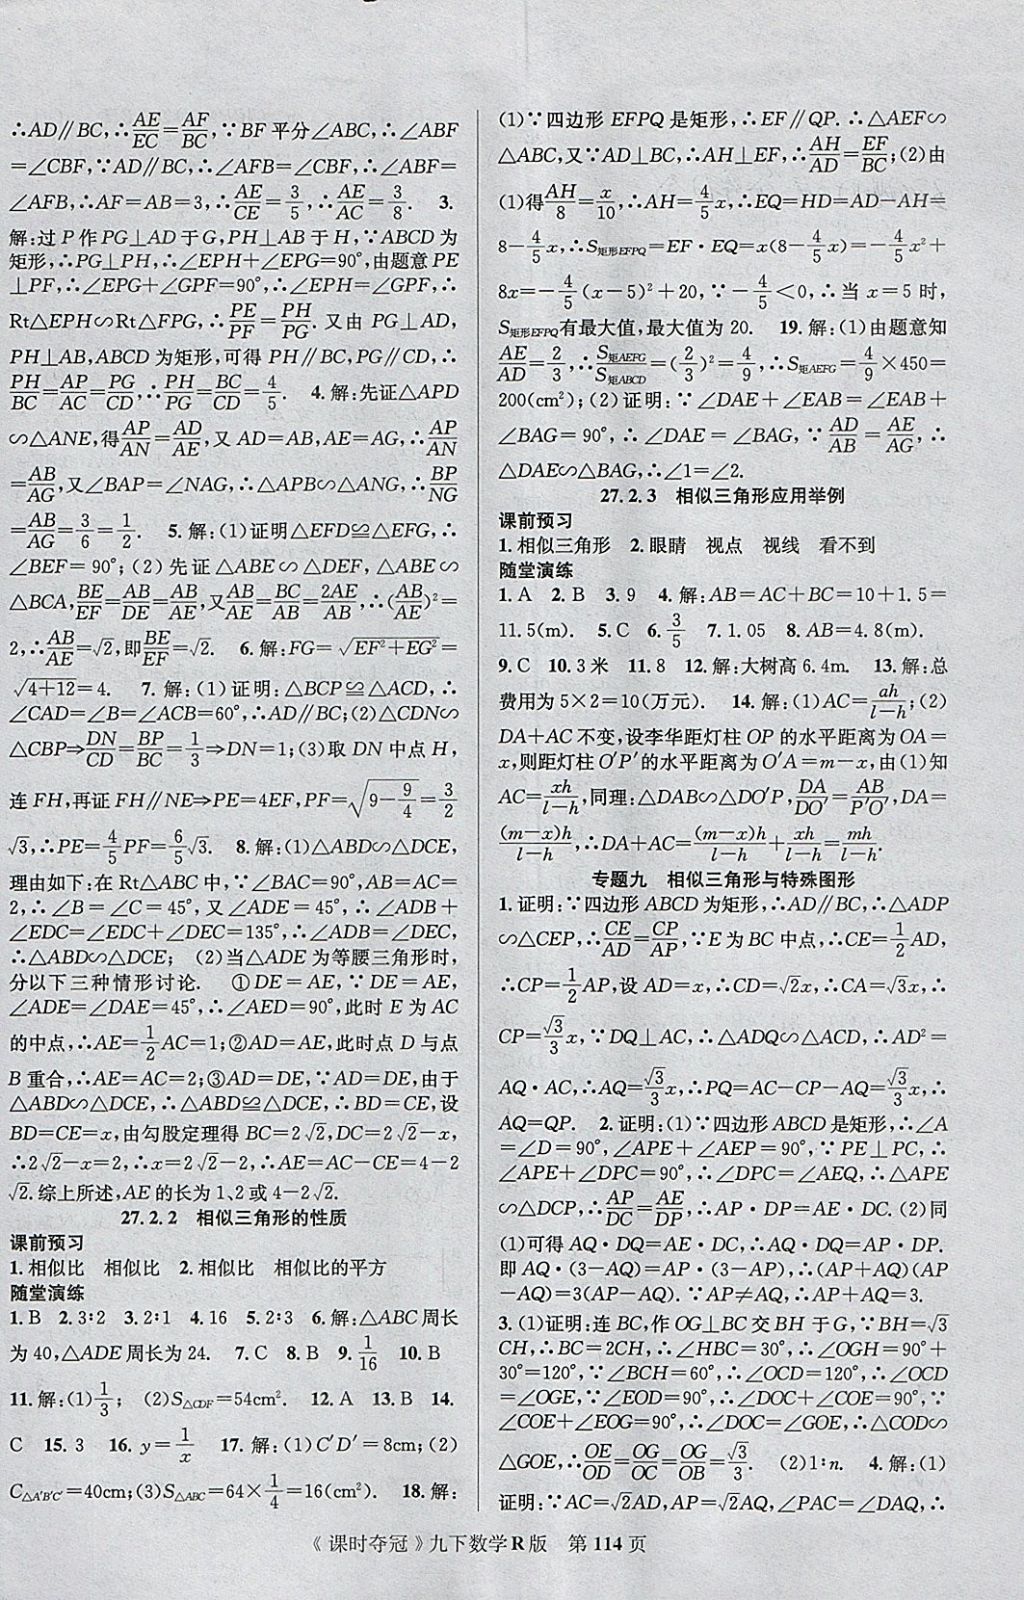 ∴AD∥BC,∴AE/EC=AF/BC,∵BF平分∠ABC,∴∠ABF
=∠CBF,∵AD∥BC,∴∠AFB=∠CBF,∴∠ABF=
∠AFB,∴AF=AB=3,∴AE/CE=3/5,∴AE/AC=3/8. 3.
解:过P作PG⊥AD于G,PH⊥AB于H,∵ABCD为
矩形,∴PG⊥PH,∴∠EPH+∠EPG=90°,由题意PE
⊥PF,∴∠EPG+∠GPF=90°,∴∠EPH=∠GPF,∴
Rt△EPH∽Rt△FPG,∴PE/PF=PH/PG.又由PG⊥AD,
PH⊥AB,ABCD为矩形,可得PH∥BC,PG∥CD,∴
PH/BC=AP/AC=PG/CD,∴PH/PG=BC/CD=4/5. 4.解:先证△APD
∽△ANE,得AP/AN=AD/AE,又AD=AB,AE=AG,∴AP/AN=
AB/AG,又∠BAP=∠NAG,∴△APB∽△ANG,∴BP/NG
=AB/AG=3/6=1/2. 5.解:(1)证明△EFD≌△EFG,∴
∠BEF=90°;(2)先证△ABE∽△DEF,△ABE∽
△BCA,BE/EF=AB/DE=AB/AE,又AB/AE=BC/AB=2AE/AB,∴(AB/AE)²=
2,∴AB/AE=√2,即BE/EF=√2. 6.解:FG=√(EF²+EG²)=
√(4+12)=4. 7.解:(1)证明:△BCP≌△ACD,∴
∠CAD=∠B=∠ACB=60°,∴AD∥BC;(2)△CDN∽
△CBP⇒DN/CD=BP/BC=1/3⇒DN=1;(3)取DN中点H,
连FH,再证FH∥NE⇒PE=4EF,PF=√(9-9/4)=3/2
√3,∴PE=4/5PF=6/5√3. 8.解:(1)△ABD∽△DCE,
理由如下:在Rt△ABC中,∵∠BAC=90°,AB=AC=
2,∴∠B=∠C=45°,又∠ADE=45°,∴∠ADB+
∠EDC=∠EDC+∠DEC=135°,∴∠ADB=∠DEC,
∴△ABD∽△DCE; (2)当△ADE为等腰三角形时,
分以下三种情形讨论. ①DE=AE,∵DE=AE,
∠ADE=∠DAE=45°,∴∠AED=90°,此时E为AC
的中点,∴AE=1/2AC=1;②AD=AE,此时点D与点
B重合,∴AE=AC=2;③AD=DE,∵AD=DE,由于
△ABD∽△DCE,∴△ABD≌△DCE,∴BD=CE,设
BD=CE=x,由勾股定理得BC=2√2,DC=2√2-x,
∴2√2-x=2,∴x=2√2-2,∴AE=AC-CE=4-2
√2.综上所述,AE的长为1、2或4-2√2.
27.2.2 相似三角形的性质
课前预习
1.相似比 相似比 2.相似比 相似比的平方
随堂演练
1.B 2.3∶2 3.2∶1 4.16 5.2∶3 6.解:△ABC周长
为40,△ADE周长为24. 7.C 8.B 9.1/16 10.B
11.解:(1)1/3; (2)S△CDF=54cm². 12.A 13.B 14.
C 15.3 16.y=1/x 17.解:(1)C′D′=8cm;(2)
C△A′B′C′=40cm;(3)S△ABC=64×1/4=16(cm²). 18.解:
(1)∵四边形EFPQ是矩形,∴EF∥QP.∴△AEF∽
△ABC,又∵AD⊥BC,∴AH⊥EF,∴AH/AD=EF/BC;(2)由
(1)得AH/8=x/10,∴AH=4/5x,∴EQ=HD=AD-AH=
8-4/5x,∴S矩形EFPQ=EF·EQ=x(8-4/5x)=-4/5x²+
8x=-4/5(x-5)²+20,∵-4/5<0,∴当x=5时,
S矩形EFPQ有最大值,最大值为20. 19.解:(1)由题意知
AE/AD=2/3,∴S矩AEFG/S矩ABCD=(2/3)²=4/9,∴S矩AEFG=4/9×450=
200(cm²);(2)证明:∵∠DAE+∠EAB=∠EAB+
∠BAG=90°,∴∠DAE=∠BAG,∵AD/AB=AE/AG,∴
△DAE∽△BAG,∴∠1=∠2.
27.2.3 相似三角形应用举例
课前预习
1.相似三角形 2.眼睛 视点 视线 看不到
随堂演练
1.A 2.B 3.9 4.解:AB=AC+BC=10+1.5=
11.5(m). 5.C 6.3/5 7.1.05 8.AB=4.8(m).
9.C 10.3米 11.8 12.解:大树高6.4m. 13.解:总
费用为5×2=10(万元). 14.解:(1)AC=ah/(l-h);(2)
DA+AC不变,设李华距灯柱OP的水平距离为OA=
x,则距灯柱O′P′的水平距离为O′A=m-x,由(1)知
AC=xh/(l-h),同理:△DAB∽△DO′P,DA/DO′=AB/P′O′,DA=
(m-x)h/(l-h),∴DA+AC=(m-x)h/(l-h)+xh/(l-h)=mh/(l-h).
专题九 相似三角形与特殊图形
1.证明:∵四边形ABCD为矩形,∴AD∥BC,∴△ADP
∽△CEP,∴CE/AD=CP/AP,∵E为BC中点,∴CE=1/2AD,
∴CP=1/2AP,设AD=x,∴CD=√2x,∴CA=√3x,∴
CP=√3/3x,∵DQ⊥AC,∴△ADQ∽△ACD,∴AD²=
AQ·AC,∴AQ=√3/3x,∴PQ=AC-CP-AQ=√3/3x,∴
AQ=QP. 2.证明:(1)∵四边形ABCD是矩形,∴∠A
=∠D=90°,∠APE+∠AEP=90°,∵PE⊥PC,∴
∠APE+∠DPC=90°,∴∠DPC=∠AEQ,∴△APE
∽△DCP,∴AP/DC=AE/DP,∴AP·DP=AE·DC.(2)同
(1)可得AQ·DQ=AE·DC,∴AQ·DQ=AP·DP.
即AQ·(3-AQ)=AP·(3-AP),∴(AP+AQ)(AP
-AQ)=3(AP-AQ).∵AP≠AQ,∴AP+AQ=3.
3.(1)证明:连BC,作OG⊥BC交BH于G,∵BH=√3
CH,∴BC=2CH,∴∠HBC=30°,∴∠OGH=90°+
30°=120°,∵∠BCH=60°,∴∠OCD=120°,∴∠OCD
=∠OGE,∵∠BOE=90°,∴∠DOC+∠COE=90°,∵
∠COE+∠EOG=90°,∴∠DOC=∠GOE,∴△COD∽
△GOE,∴OE/OD=OG/OC=OG/OB=√3/3. (2)1∶n. 4.解:(1)
证明:∵AC=√2AD,AP=√2AQ,∠PAC=∠DAQ,∴
《课时夺冠》九下数学R版 第114页